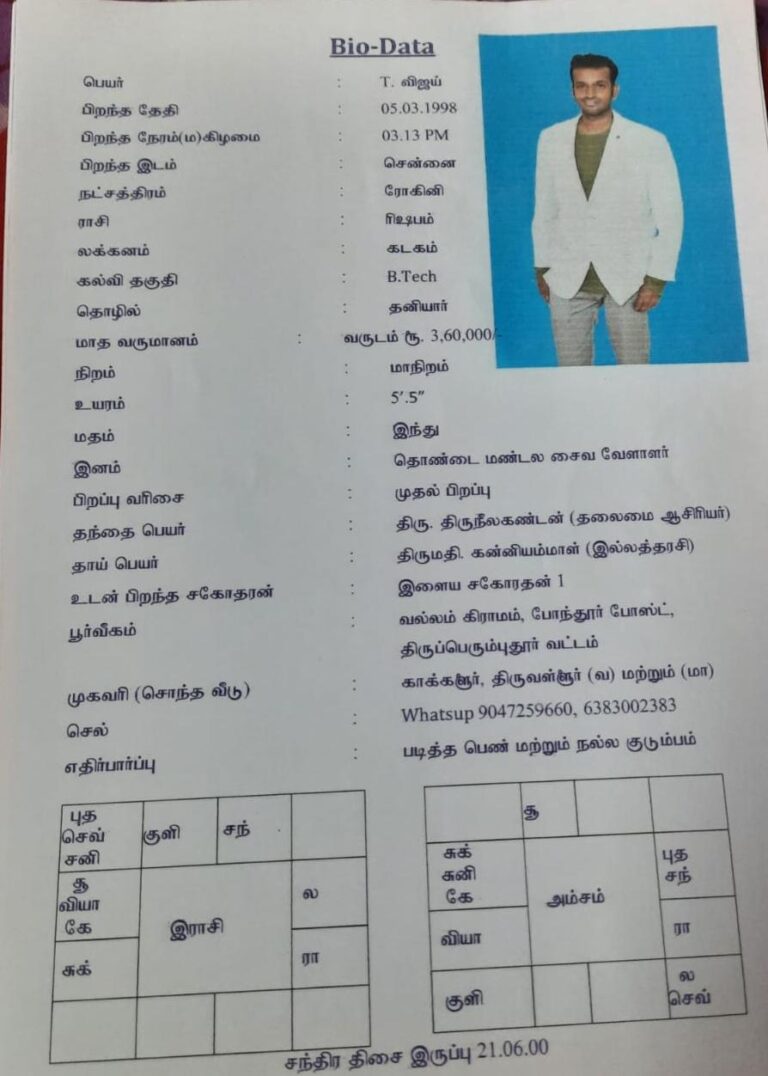 Bio-Data
பெயர் : T. விஜய்
பிறந்த தேதி : 05.03.1998
பிறந்த நேரம்(ம)கிழமை : 03.13 PM
பிறந்த இடம் : சென்னை
நட்சத்திரம் : ரோகினி
ராசி : ரிஷபம்
லக்கனம் : கடகம்
கல்வி தகுதி : B.Tech
தொழில் : தனியார்
மாத வருமானம் : வருடம் ரூ. 3,60,000/-
நிறம் : மாநிறம்
உயரம் : 5'.5"
மதம் : இந்து
இனம் : தொண்டை மண்டல சைவ வேளாளர்
பிறப்பு வரிசை : முதல் பிறப்பு
தந்தை பெயர் : திரு. திருநீலகண்டன் (தலைமை ஆசிரியர்)
தாய் பெயர் : திருமதி. கன்னியம்மாள் (இல்லத்தரசி)
உடன் பிறந்த சகோதரன் : இளைய சகோரதன் 1
பூர்வீகம் : வல்லம் கிராமம், போந்தூர் போஸ்ட்,
திருப்பெரும்புதூர் வட்டம்
முகவரி (சொந்த வீடு) : காக்களூர், திருவள்ளூர் (வ) மற்றும் (மா)
செல் : Whatsup 9047259660, 6383002383
எதிர்பார்ப்பு : படித்த பெண் மற்றும் நல்ல குடும்பம்
புத
செவ்
சனி
குளி
சந்
சூ
வியா
கே
இராசி
ல
சுக்
ரா
சூ
சுக்
சுனி
கே
அம்சம்
புத
சந்
வியா
ரா
குளி
ல
செவ்
சந்திர திசை இருப்பு 21.06.00